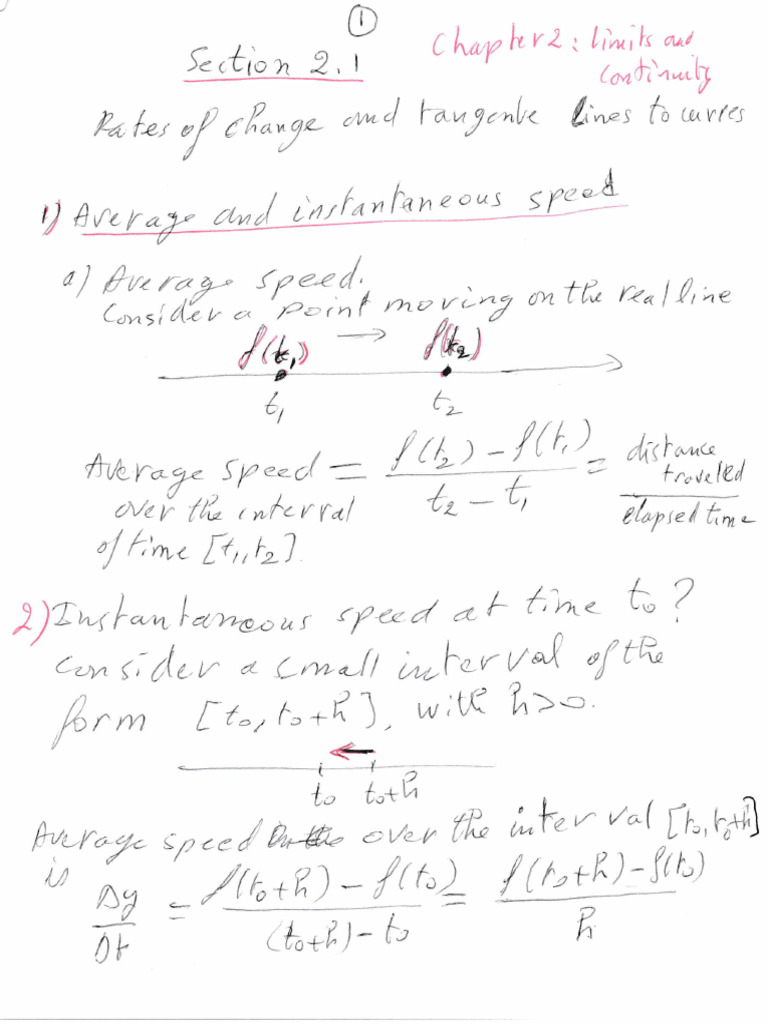 ①
Section 2.1
Chapter 2: limits and
continuity
Rates of change and tangente lines to curves
1) Average and instantaneous speed
a) Average speed.
Consider a point moving on the real line
f(t₁) → f(t₂)
t₁ t₂
Average speed = (f(t₂) - f(t₁)) / (t₂ - t₁) = distance traveled / elapsed time
over the interval
of time [t₁, t₂].
2) Instantaneous speed at time t₀?
Consider a small interval of the
form [t₀, t₀+h], with h>0.
t₀ t₀+h
Average speed over the interval [t₀, t₀+h]
is
Δy/Δt = (f(t₀+h) - f(t₀)) / ((t₀+h) - t₀) = (f(t₀+h) - f(t₀)) / h